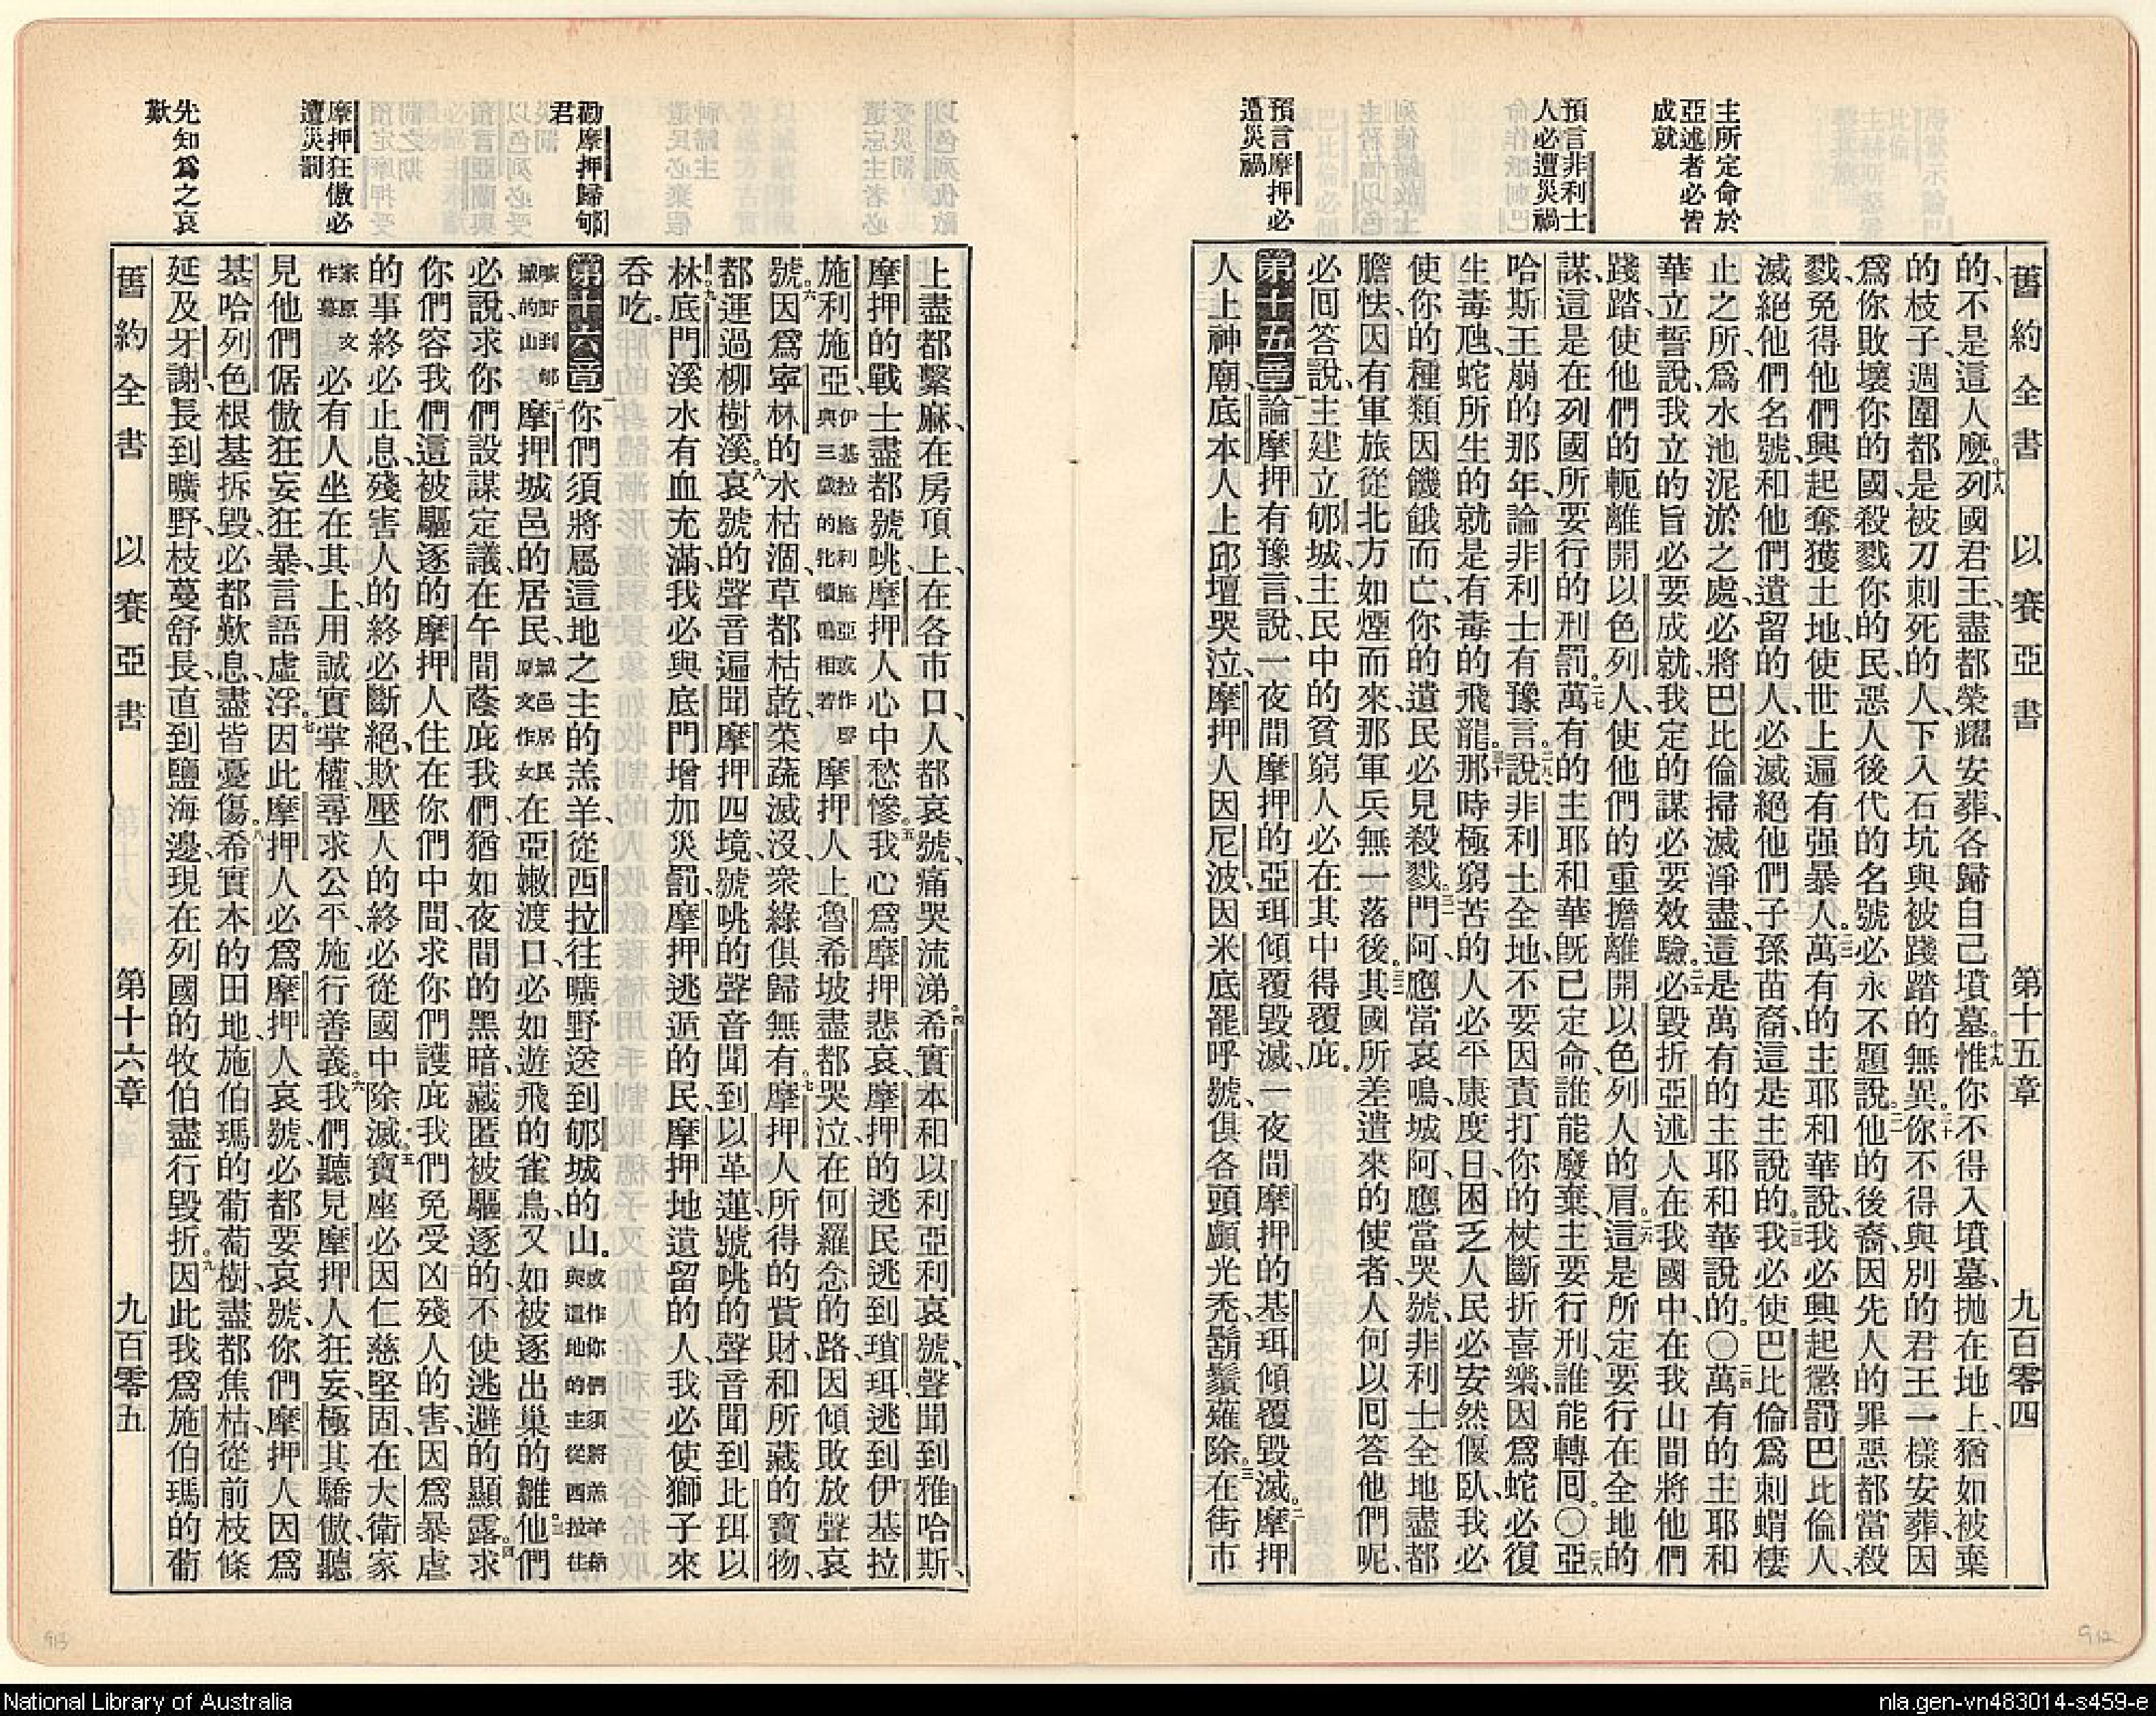 舊約全書 以賽亞書 第十五章 九百零四
主所定命於
亞述者必皆
成就
預言非利士
人必遭災禍
預言摩押必
遭災禍
的、不是這人麼。十八列國君王、盡都榮耀安葬、各歸自己墳墓。十九惟你不得入墳墓、拋在地上、猶如被棄
的枝子、週圍都是被刀刺死的人、下入石坑、與被踐踏的無異。二十你不得與別的君王一樣安葬、因
爲你敗壞你的國、殺戮你的民、惡人後代的名號、必永不題說。二一他的後裔、因先人的罪惡都當殺
戮、免得他們興起奪獲土地、使世上遍有强暴人。二二萬有的主耶和華說、我必興起懲罰巴比倫人、
滅絕他們名號、和他們遺留的人、必滅絕他們子孫苗裔、這是主說的。二三我必使巴比倫爲刺蝟棲
止之所、爲水池泥淤之處、必將巴比倫掃滅淨盡、這是萬有的主耶和華說的。〇二四萬有的主耶和
華立誓說、我立的旨必要成就、我定的謀必要效驗。二五必毀折亞述人在我國中、在我山間將他們
踐踏、使他們的軛離開以色列人、使他們的重擔離開以色列人的肩。二六這是所定要行在全地的
謀、這是在列國所要行的刑罰。二七萬有的主耶和華旣已定命、誰能廢棄、主要行刑、誰能轉囘。〇二八亞
哈斯王崩的那年、論非利士有豫言說、二九非利士全地、不要因責打你的杖斷折喜樂、因爲蛇必復
生毒虺、蛇所生的就是有毒的飛龍。三十那時極窮苦的人必平康度日、困乏人民必安然偃臥、我必
使你的種類因饑餓而亡、你的遺民必見殺戮。三一門阿、應當哀鳴、城阿、應當哭號、非利士全地盡都
膽怯、因有軍旅從北方如煙而來、那軍兵無一落後。三二其國所差遣來的使者、人何以囘答他們呢、
必囘答說、主建立郇城、主民中的貧窮人必在其中得覆庇。
第十五章 一論摩押有豫言說、一夜間摩押的亞珥傾覆毀滅、一夜間摩押的基珥傾覆毀滅。二摩押
人上神廟、底本人上邱壇哭泣、摩押人因尼波、因米底罷呼號、俱各頭顱光禿、鬍鬚薙除。三在街市
勸摩押歸郇
君
摩押狂傲必
遭災罰
先知爲之哀
歎
上盡都繫麻、在房頂上、在各市口、人都哀號、痛哭流涕。四希實本和以利亞利哀號、聲聞到雅哈斯、
摩押的戰士盡都號咷、摩押人心中愁慘。五我心爲摩押悲哀、摩押的逃民逃到瑣珥、逃到伊基拉
施利施亞、伊基拉施利施亞或作聲與三歲的牝犢鳴相若摩押人上魯希坡盡都哭泣、在何羅念的路、因傾敗放聲哀
號。六因爲寧林的水枯涸、草都枯乾、菜蔬滅沒、衆綠俱歸無有。七摩押人所得的貲財、和所藏的寶物、
都運過柳樹溪。八哀號的聲音遍聞摩押四境、號咷的聲音聞到以革蓮、號咷的聲音聞到比珥以
林。九底門溪水有血充滿、我必與底門增加災罰、摩押逃遁的民、摩押地遺留的人、我必使獅子來
吞吃。
第十六章 一你們須將屬這地之主的羔羊、從西拉往曠野送到郇城的山。或作你們須將羔羊納與這地的主從西拉往
曠野到郇城的山二摩押城邑的居民、城邑居民原文作女在亞嫩渡口、必如遊飛的雀鳥、又如被逐出巢的雛。三他們
必說、求你們設謀定議、在午間蔭庇我們、猶如夜間的黑暗、藏匿被驅逐的、不使逃避的顯露。四求
你們容我們這被驅逐的摩押人住在你們中間、求你們護庇我們免受凶殘人的害、因爲暴虐
的事終必止息、殘害人的終必斷絕、欺壓人的終必從國中除滅。五寶座必因仁慈堅固、在大衛家
家原文作幕必有人坐在其上、用誠實掌權、尋求公平、施行善義。六我們聽見摩押人狂妄、極其驕傲、聽
見他們倨傲狂妄狂暴、言語虛浮。七因此摩押人必爲摩押人哀號、必都要哀號、你們摩押人因爲
基哈列色根基拆毀、必都歎息、盡皆憂傷。八希實本的田地、施伯瑪的葡萄樹、盡都焦枯、從前枝條
延及牙謝、長到曠野、枝蔓舒長、直到鹽海邊、現在列國的牧伯盡行毀折。九因此我爲施伯瑪的葡
舊約全書 以賽亞書 第十六章 九百零五
913
912
National Library of Australia
nla.gen-vn483014-s459-e